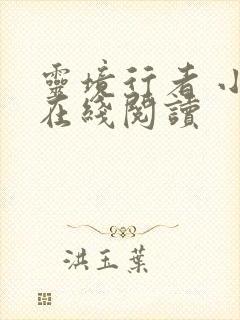 靈境行者 小
在綫閱讀
洪玉葉